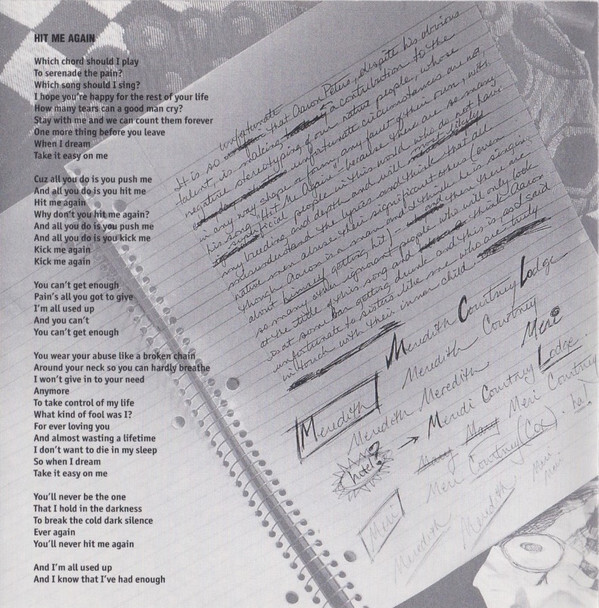 HIT ME AGAIN
Which chord should I play
To serenade the pain?
Which song should I sing?
I hope you're happy for the rest of your life
How many tears can a good man cry?
Stay with me and we can count them forever
One more thing before you leave
When I dream
Take it easy on me
Cuz all you do is you push me
And all you do is you hit me
Hit me again
Why don't you hit me again?
And all you do is you push me
And all you do is you kick me
Kick me again
Kick me again
You can't get enough
Pain's all you got to give
I'm all used up
And you can't
You can't get enough
You wear your abuse like a broken chain
Around your neck so you can hardly breathe
I won't give in to your need
Anymore
To take control of my life
What kind of fool was I?
For ever loving you
And almost wasting a lifetime
I don't want to die in my sleep
So when I dream
Take it easy on me
You'll never be the one
That I hold in the darkness
To break the cold dark silence
Ever again
You'll never hit me again
And I'm all used up
And I know that I've had enough
It is so unfortunate that Aaron Peters, despite his obvious
talent, is making a contribution to the
negative stereotyping of our native people, whose
unfortunate circumstances are not
in any way shape or form, any fault of their own, with
his song "Hit Me Again", because there are so many
superficial people in this world who do not have
any breeding and depth and will
misunderstand the lyrics and think that all
native men abuse their significant others (even
though Aaron is a man, and is singing
about himself getting hit) - then there are
so many even ignorant people who will only look
at the title of this song and think Aaron
is at some bar getting drunk and this is just said
unfortunate to sisters like me who are truly
in touch with their inner child
Meredith Courtney Lodge
Meredith Courtney
Meredith Meredith Meri
Meredith
Meridi Courtney Lodge
hotel?
Mary Mary Meri Courtney
Meri Courtney (Cox) - ha!
Meri
Meri
Meri
Meredith
Meredith